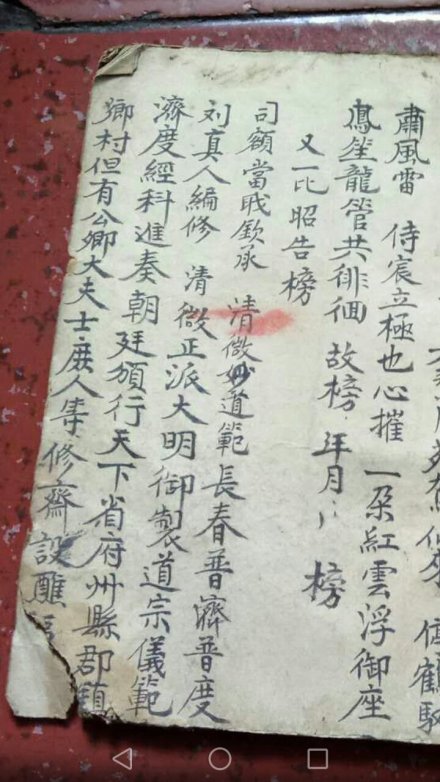 肅風雷 侍宸立極也心摧 一朵紅雲浮御座
鳳笙龍管共徘徊 故榜 年月 榜
又一比昭告榜
司額當職欽承 清微妙道範長春普濟普度
刘真人編修 清微正派大明御製道宗儀範
濟度經科進奏朝廷頒行天下省府州縣郡鎮
鄉村但有公卿大夫士庶人等修齋設醮